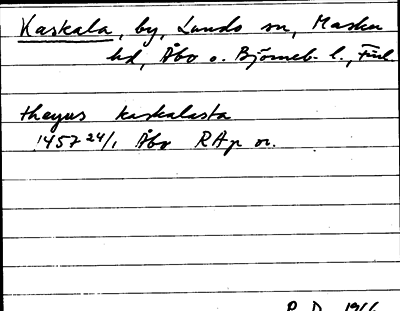 Kaskala, by, Lundo sn, Masku
hd, Åbo o. Björneb. l., Finl.
theyus kaskalasta
1457 24/1 Åbo RAp or.
R.D. 1966